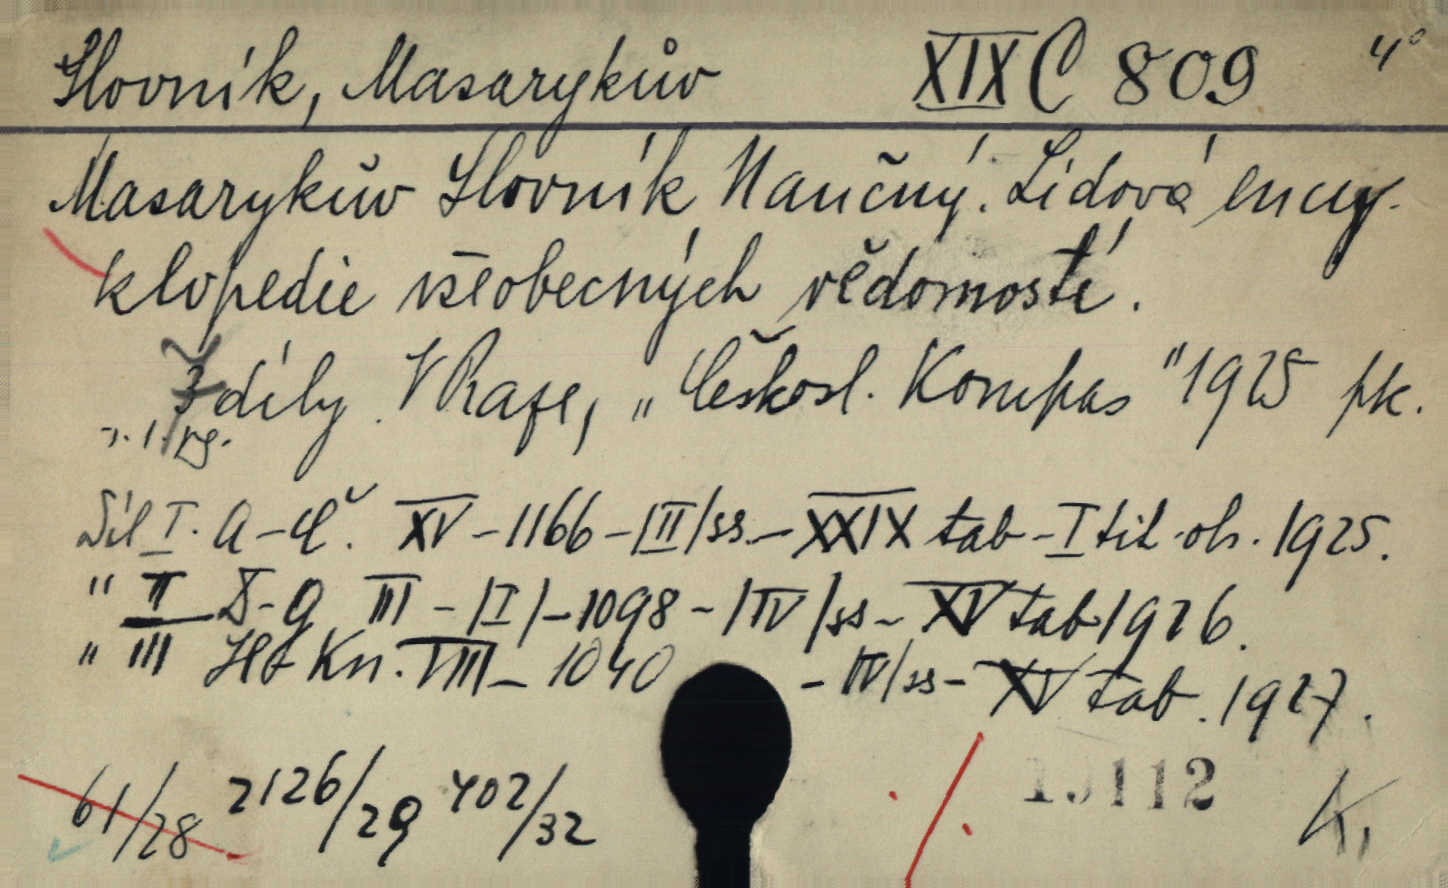 Slovník, Masarykův XIX C 809 4°
Masarykův Slovník Naučný. Lidová ency-
klopedie všeobecných vědomostí.
díly. V Praze, „Českosl. Kompas" 1925 pk.
Díl I. A-Č. XV-1166-|II|ss.-XXIX tab-I tit. ob. 1925.
" II D-G III-|I|-1098-|IV|ss-XV tab 1926.
" III H Kn. VIII-1040 -IV|ss-XV tab. 1927.
61/28 2126/29 402/32
K.